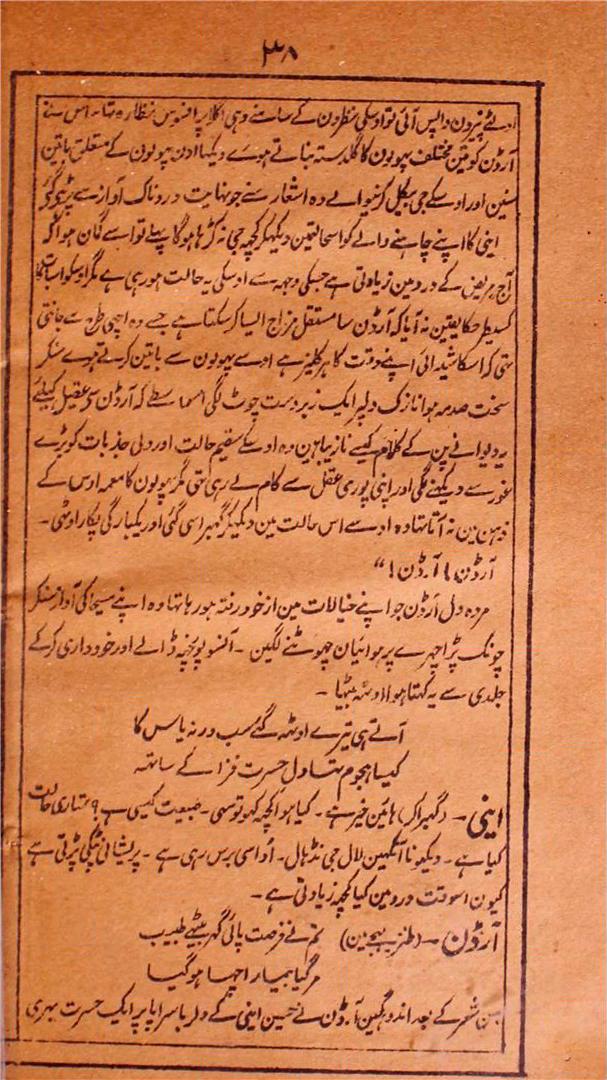 ۳۸
اولٹے پیرون واپس آئی تو اوسکی نظرون کے سامنے وہی اگلا پر افسوس نظارہ تھا۔ اس نے
آرڈن کو تین مختلف پھولون کا گلدستہ بناتے ہوے دیکھا اون پھولون کے متعلق باتین
سنین اور اوسکے جی بیکل کر نیوالے وہ اشعار سنے جو نہایت دردناک آواز سے پڑہے گئے
اینی کا اپنے چاہنے والے کو اسحالتمین دیکھکر کچھ جی نہ کڑہا ہوگا پہلے تو اسے گمان ہوا کہ
آج مریض کے درد مین زیادتی ہے جسکی وجہہ سے اوسکی یہ حالت ہو رہی ہے مگر اوسکو اسبات کا
کسیطرحکا یقین نہ آیا کہ آرڈن سا مستقل مزاج ایسا کر سکتا ہے جسے وہ اچھی طرح سے جانتی
تھی کہ اسکا شیدائی اپنے وقت کا ہرکلیز ہے اوسے پھولون سے باتین کرتے ہوے سنکر
سخت صدمہ ہوا نازک دلپر ایک زبردست چوٹ لگی اسواسطے کہ آرڈن سے عقیل کیلئے
یہ دیوانے پن کے کلام کیسے نازیبا ہین وہ اوسکے سقیم حالت اور دلی جذبات کو بڑے
غور سے دیکھنے لگی اور اپنی پوری عقل سے کام لے رہی تھی مگر پھولون کا معمہ اوس کے
ذہن مین نہ آتا تھا وہ اوسے اس حالت مین دیکھکر گھبرا سی گئی اور یکبارگی پکار اوٹھی۔
آرڈن! آرڈن! “
مردہ دل آرڈن جو اپنے خیالات مین از خود رفتہ ہو رہا تھا وہ اپنے مسیحا کی آواز سنکر
چونک پڑا چہرے پر ہوائیان چھوٹنے لگین۔ آنسو پونچھہ ڈالے اور خودداری کرکے
جلدی سے یہ کہتا ہوا اوٹھ بیٹھا۔
آتے ہی تیرے اوٹھہ گئے سب ورنہ یاس کا
کیسا ہجوم تھا دل حسرت فزا کے ساتھہ
اینی۔ (گھبرا کر) ہائین خیر ہے۔ کیا ہوا کچھ کہو تو سہی۔ طبیعت کیسی ہے؟ تمہاری حالت
کیا ہے۔ دیکھو نا آنکھین لال جی نڈہال۔ اُداسی برس رہی ہے۔ پریشانی ٹپکی پڑتی ہے
کیون اسوقت درد مین کیا کچھ زیادتی ہے۔
آرڈن۔ (طنز یہ لہجے مین) تم نے فرصت پائی گھر بیٹھے طبیب
مر گیا بیمار اچھا ہو گیا
شعر کے بعد اندوہگین آرڈن نے حسین اینی کے دلربا سراپا پر ایک حسرت بھری